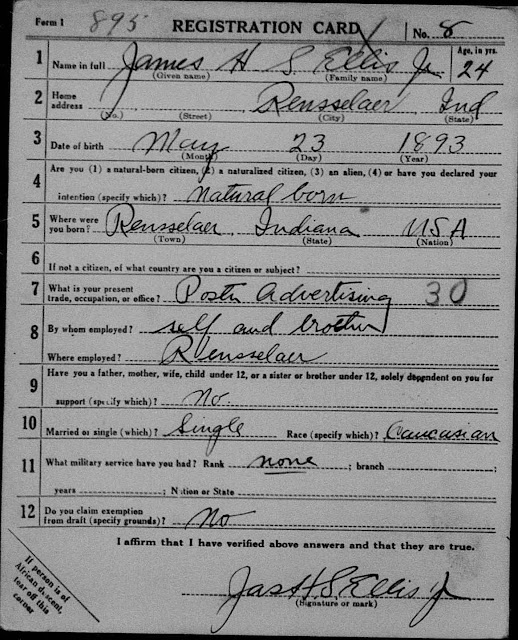 Form 1 895 REGISTRATION CARD No. 8
1 Name in full James H S Ellis Jr Age, in yrs. 24
(Given name) (Family name)
2 Home address Rensselaer Ind
(No.) (Street) (City) (State)
3 Date of birth May 23 1893
(Month) (Day) (Year)
4 Are you (1) a natural-born citizen, (2) a naturalized citizen, (3) an alien, (4) or have you declared your
intention (specify which)? natural born
5 Where were you born? Rensselaer Indiana USA
(Town) (State) (Nation)
6 If not a citizen, of what country are you a citizen or subject?
7 What is your present trade, occupation, or office? Poster Advertising 30
8 By whom employed? self and brother
Where employed? Rensselaer
9 Have you a father, mother, wife, child under 12, or a sister or brother under 12, solely dependent on you for
support (specify which)? No.
10 Married or single (which)? Single Race (specify which)? Caucasian
11 What military service have you had? Rank none ; branch ;
years ; Nation or State
12 Do you claim exemption from draft (specify grounds)? No
I affirm that I have verified above answers and that they are true.
If person is of
African descent,
tear off this
corner
Jas H. S. Ellis Jr
(Signature or mark)